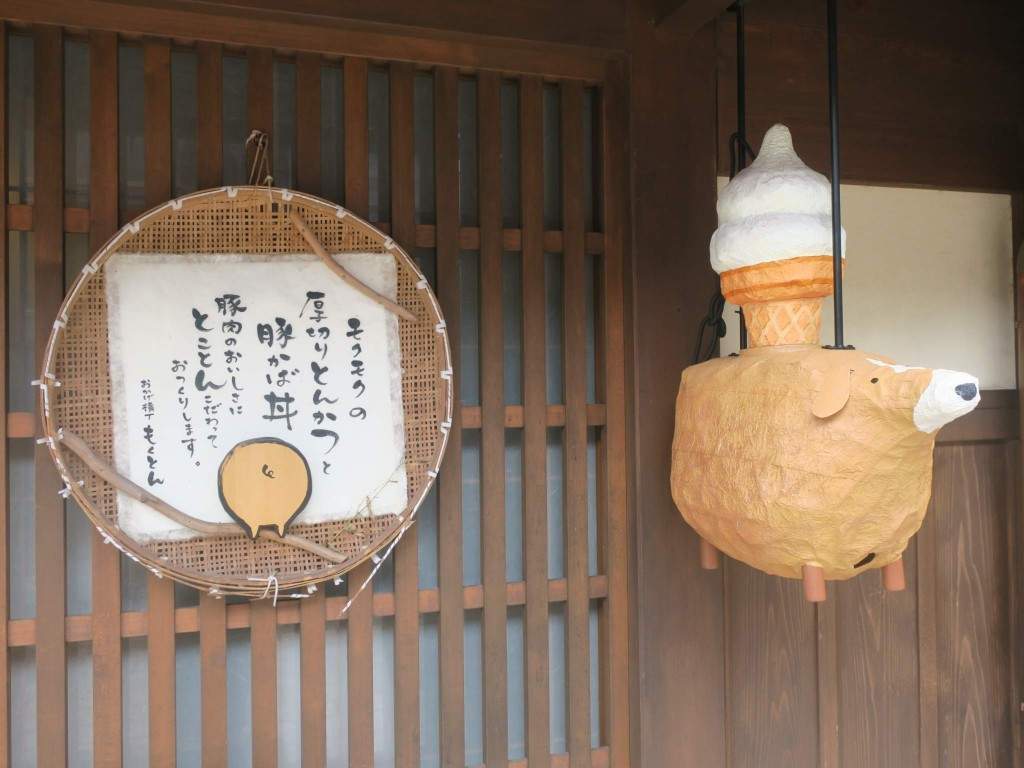 モクモクの
厚切りとんかつと
豚かば丼
豚肉のおいしさに
とことんこだわって
おつくりします。
おかげ横丁 もくとん